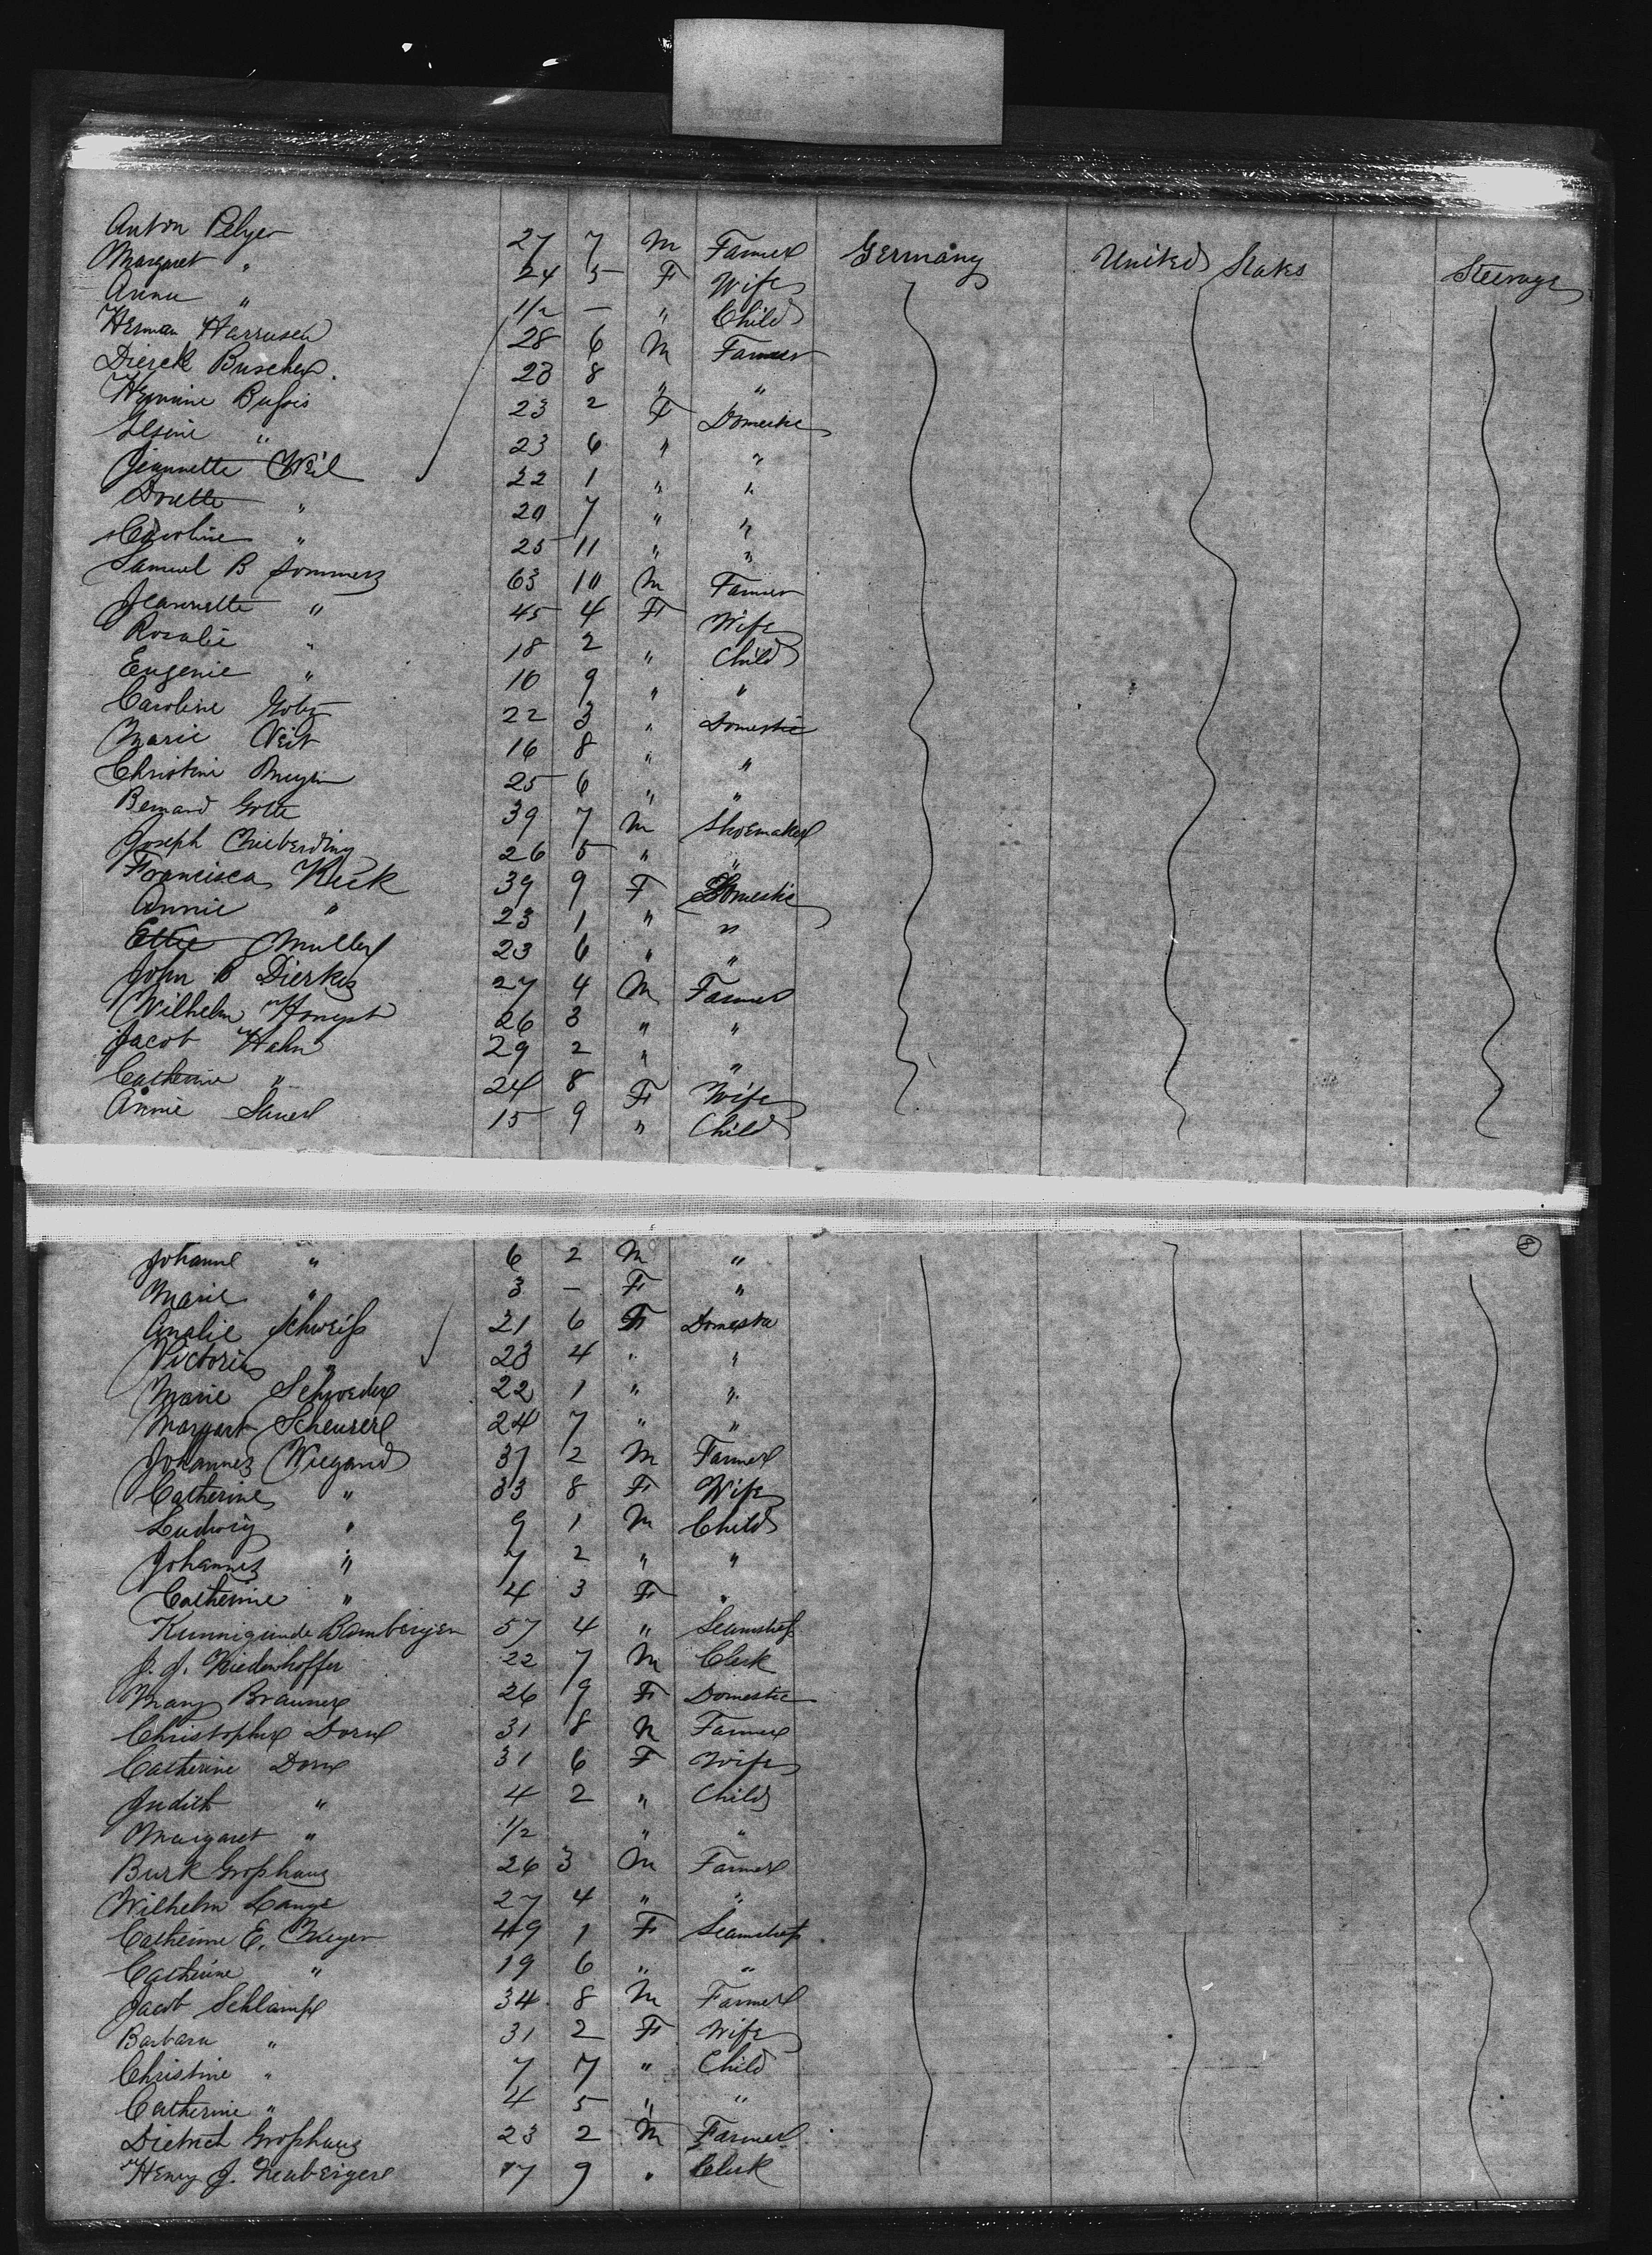 Anton Pelzer 27 7 M Farmer Germany United States Steerage
Margaret " 24 5 F Wife
Anna " 1/2 — " Child
Herman Harrusen 28 6 M Farmer
Dierck Buscher 28 8 " "
Hermine 23 2 F Domestic
Gesine " 23 6 " "
Jeannette Weil 22 1 " "
" 20 7 " "
Caroline " 25 11 " "
Samuel B Sommers 63 10 M Farmer
Jeannette " 45 4 F Wife
Rosalie " 18 2 " Child
Eugenie " 16 9 " "
Caroline 22 3 " Domestic
Marie Veit 16 8 " "
Christine 25 6 " "
Bernard Grote 39 7 M Shoemaker
Joseph 26 5 " "
Francisca Keck 39 9 F Domestic
Annie " 23 1 " "
Ettie Muller 23 6 " "
John B Dierkes 27 4 M Farmer
Wilhelm 26 3 " "
Jacob Hahn 29 2 " "
Catherine " 24 8 F Wife
Annie Sauer 15 9 " Child
8
Johann " 6 2 M "
Marie " 3 — F "
Amalie Schweiß 21 6 F Domestic
Victoria " 23 4 " "
Marie Schroeder 22 1 " "
Margart Scheurer 24 7 " "
Johannes Wiegand 37 2 M Farmer
Catherine " 33 8 F Wife
Ludwig " 9 1 M Child
Johannes " 7 2 " "
Catherine " 4 3 F "
Kunnigunde Bamberger 57 4 " Seamstreß
J. J. Niedenhoffer 22 7 M Clerk
Mary Brauner 26 9 F Domestic
Christopher Dorn 31 8 M Farmer
Catherine Dorn 31 6 F Wife
Judith " 4 2 " Child
Margaret " 1/2 " "
Burk Großhaus 26 3 M Farmer
Wilhelm Lange 27 4 " "
Catherine E. Meyer 49 1 F Seamstreß
Catherine " 19 6 " "
Jacob Schlampp 34 8 M Farmer
Barbara " 31 2 F Wife
Christine " 7 7 " Child
Catherine " 4 5 " "
Dietrich Großhaus 23 2 M Farmer
Henry J. Neuberger 17 9 " Clerk